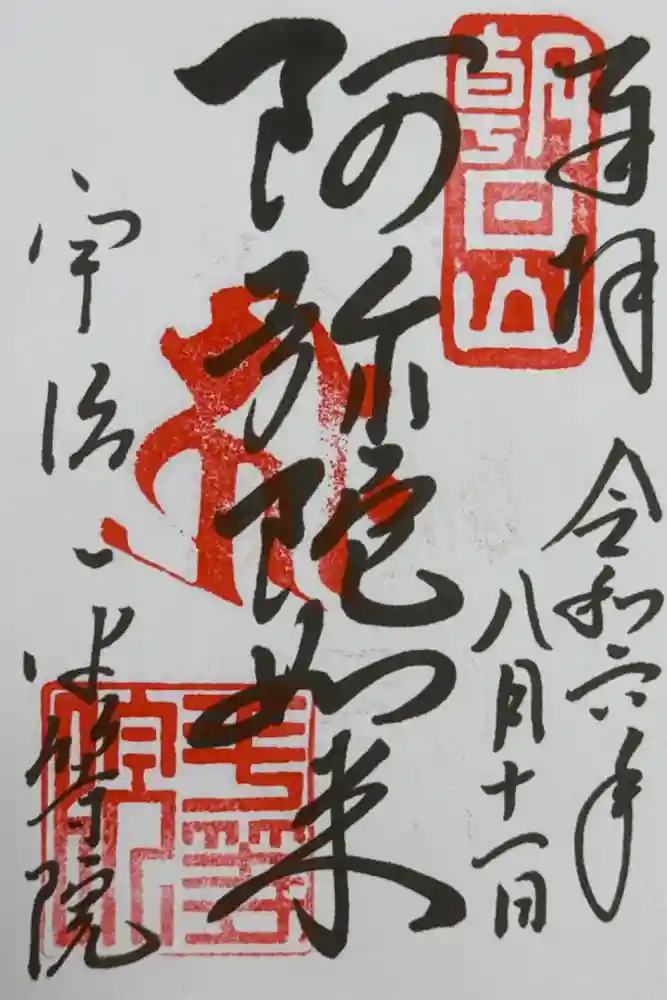 奉拝
令和六年
八月十一日
朝日山
阿弥陀如来
宇治
平等院
平等院